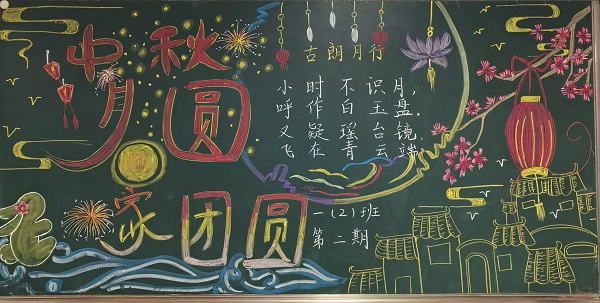 中秋
月圆
家团圆
古朗月行
小时不识月，
呼作白玉盘。
又疑瑶台镜，
飞在青云端。
一(2)班
第二期